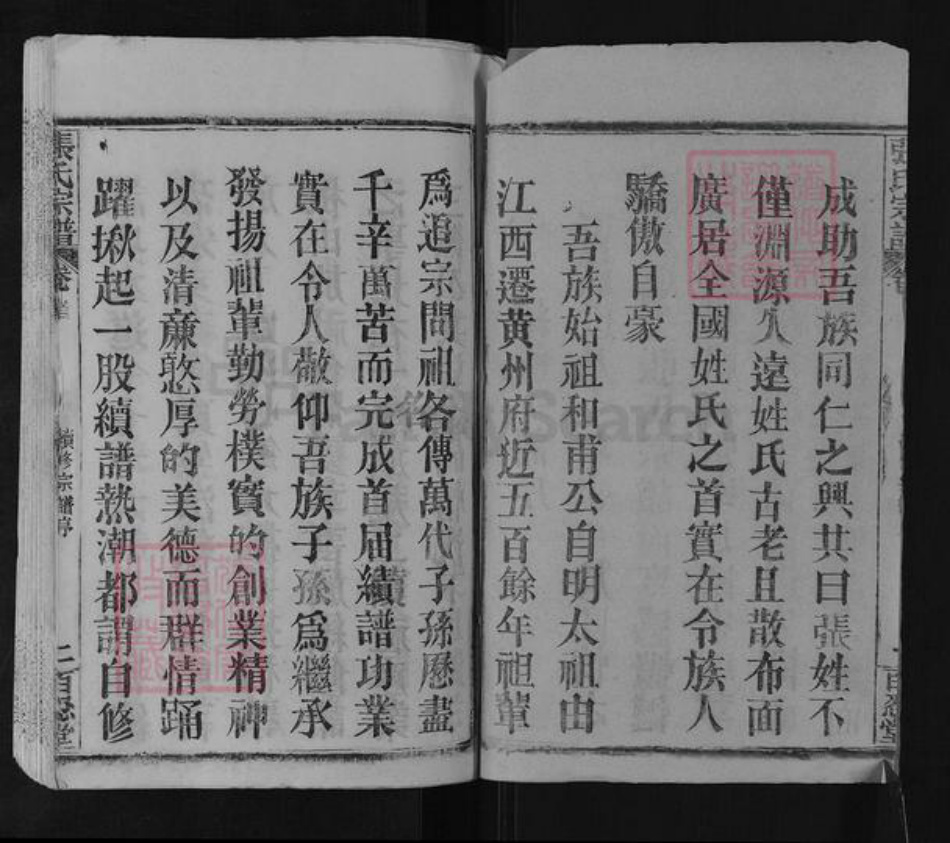 成助吾族同仁之興共曰張姓不
僅淵源久遠姓氏古老且散布面
廣居全國姓氏之首實在令族人
驕傲自豪
吾族始祖和甫公自明太祖由
江西遷黃州府近五百餘年祖輩
爲追宗問祖各傳萬代子孫歷盡
千辛萬苦而完成首届續譜功業
實在令人敬仰吾族子孫爲繼承
發揚祖輩勤勞樸實的創業精神
以及清亷憨厚的美德而群情踊
躍掀起一股續譜熱潮都謂自修
張氏宗譜
卷
續修宗譜序
二百忍堂
張氏宗譜
百忍堂